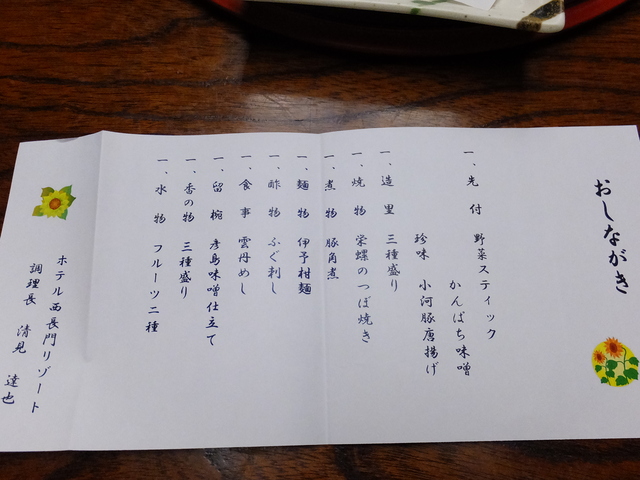 おしながき
一、先付 野菜スティック
かんぱち味噌
珍味 小河豚唐揚げ
一、造里 三種盛り
一、焼物 栄螺のつぼ焼き
一、煮物 豚角煮
一、麺物 伊予柑麺
一、酢物 ふぐ刺し
一、食事 雲丹めし
一、留椀 彦島味噌仕立て
一、香の物 三種盛り
一、水物 フルーツ二種
ホテル西長門リゾート
調理長 清見 達也